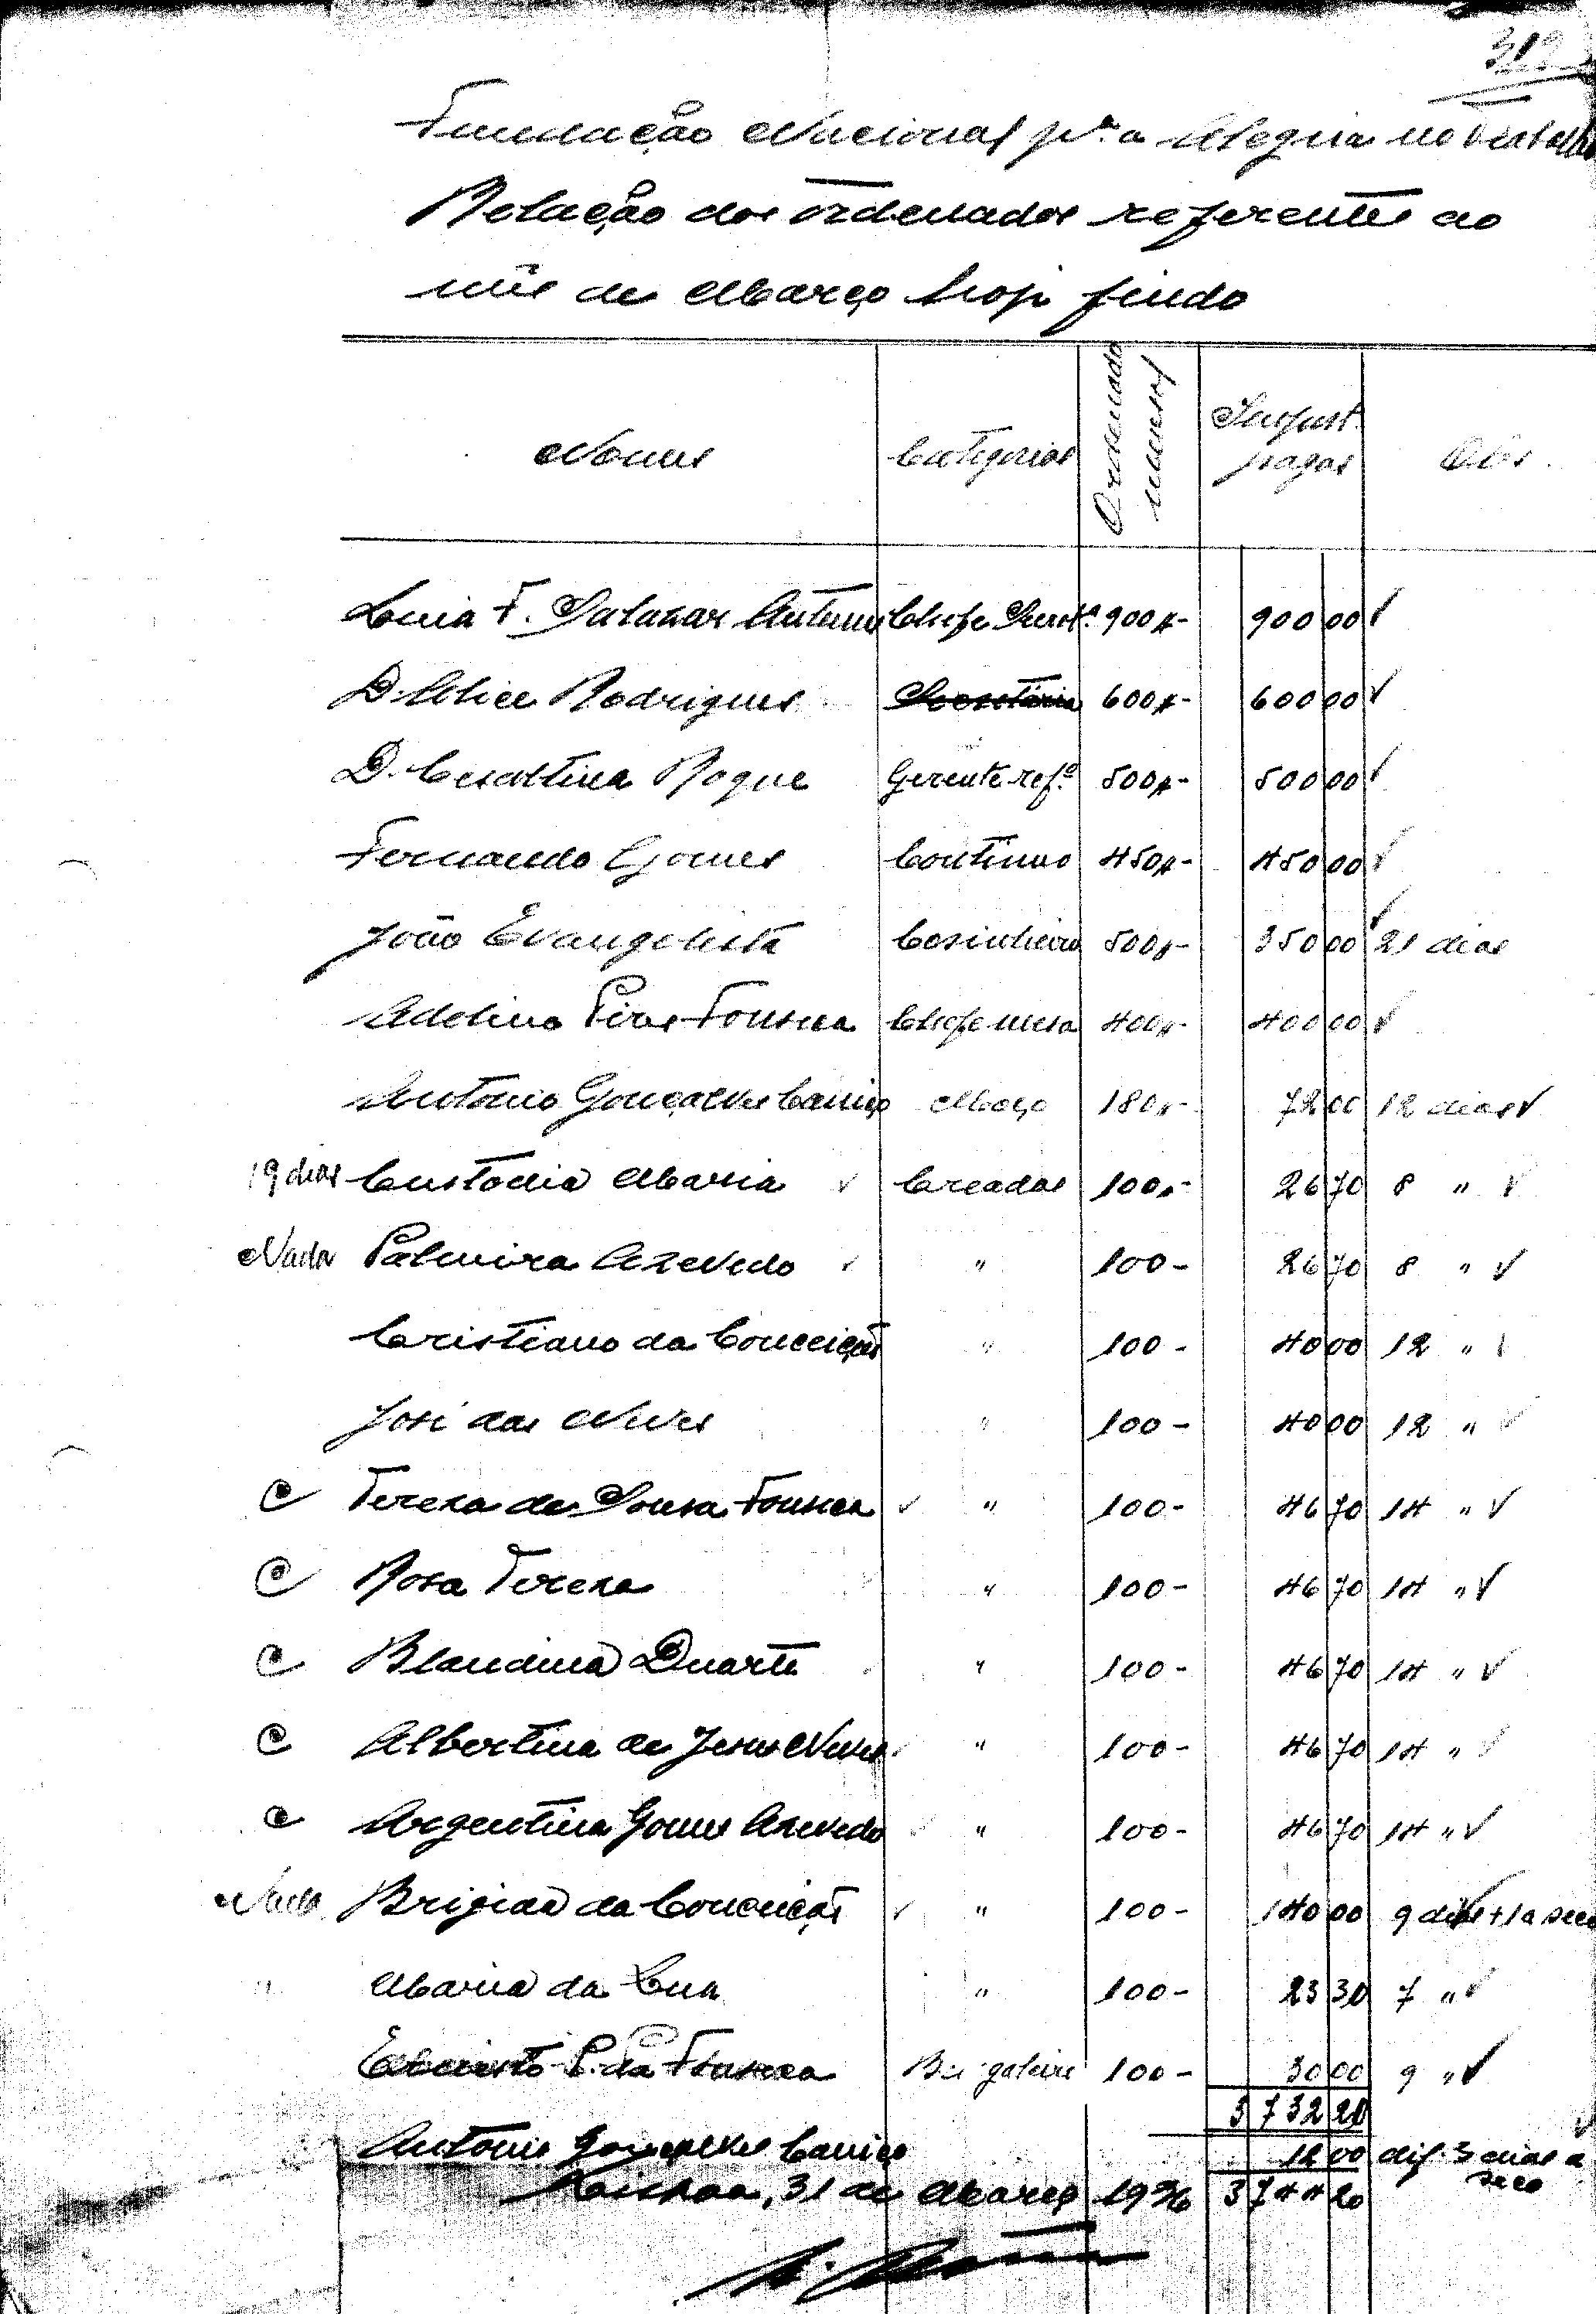 319
Fundação Nacional pª a Alegria no Trabalho
Relação dos ordenados referentes ao
mês de Março hoje findo
Nomes Categorias Ordenado mensal Import. pagas Obs.
F. Salazar Antunes Chefe Secretª 900$- 900 00 √
D. Alice Rodrigues 600$- 600 00 √
D. Cesaltina Roque Gerente refº 500$- 500 00 √
Fernando Gomes Contínuo 450$- 450 00 √
João Evangelista Cosinheiro 500$- 350 00 √ 21 dias
Adelino Pires Fonseca Chefe mesa 400$- 400 00 √
António Gonçalves Carriço Moço 180$- 72 00 12 dias √
19 dias Custódia Maria √ Creadas 100$- 26 70 8 " √
Nada Palmira Azevedo √ " 100- 26 70 8 " √
Cristiano da Conceição " 100- 40 00 12 " √
José das Neves " 100- 40 00 12 " √
C Tereza de Sousa Fonseca √ " 100- 46 70 14 " √
C Rosa Tereza " 100- 46 70 14 " √
C Blandina Duarte " 100- 46 70 14 " √
C Albertina de Jesus Neves √ " 100- 46 70 14 " √
C Argentina Gomes Azevedo √ " 100- 46 70 14 " √
Nada Brigida da Conceição √ " 100- 140 00 9 dias + 1 a seco
" Maria da Luz " 100- 23 30 7 " √
P. da Fonseca 100- 30 00 9 " √
3 732 20
António Gonçalves Carriço 12 00 dif. 3 dias a seco
31 de Março 19 3 744 20